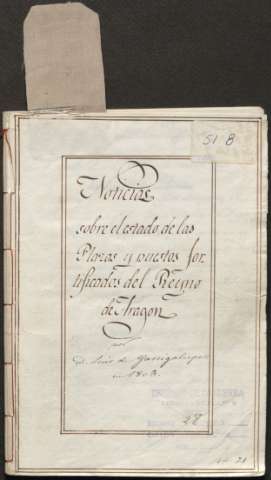 51 8
Noticias
sobre el estado de las
Plazas y puestos for
tificados del Reyno
de Aragon
por
D. Luis de
en 1803.
28